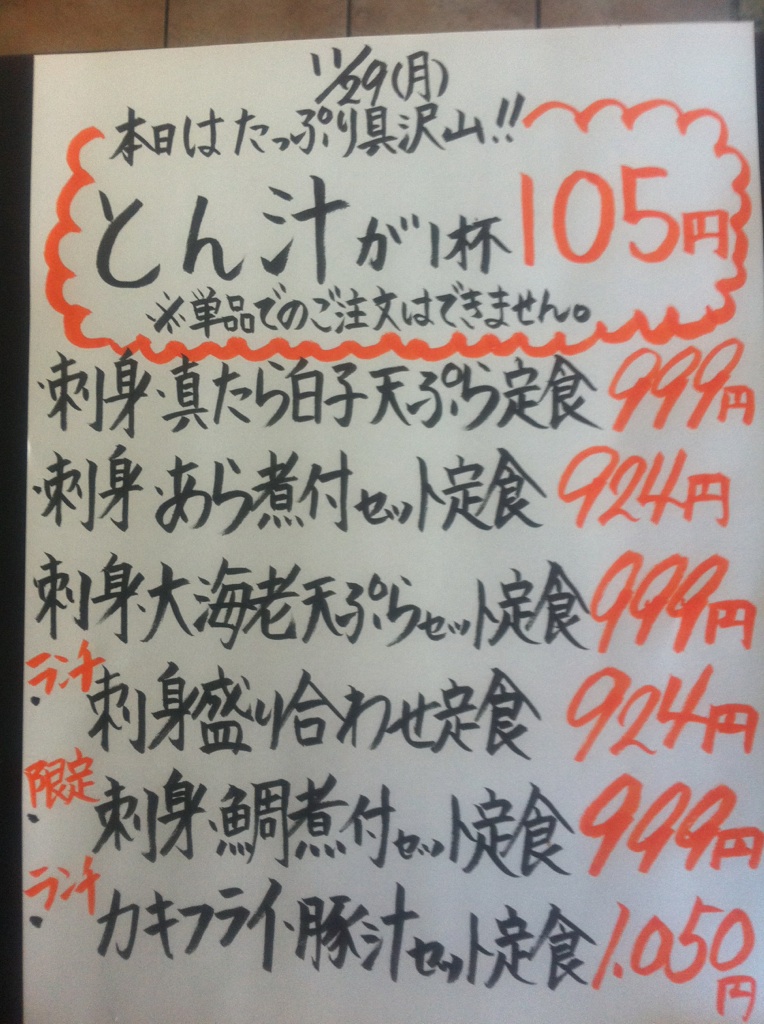 11/29(月)
本日はたっぷり具沢山!!
とん汁が1杯105円
※単品でのご注文はできません。
・刺身・真たら白子天ぷら定食 999円
・刺身・あら煮付セット定食 924円
刺身・大海老天ぷらセット定食 999円
ランチ
・刺身盛り合わせ定食 924円
限定
・刺身・鯛煮付セット定食 999円
ランチ
・カキフライ・豚汁セット定食 1.050円